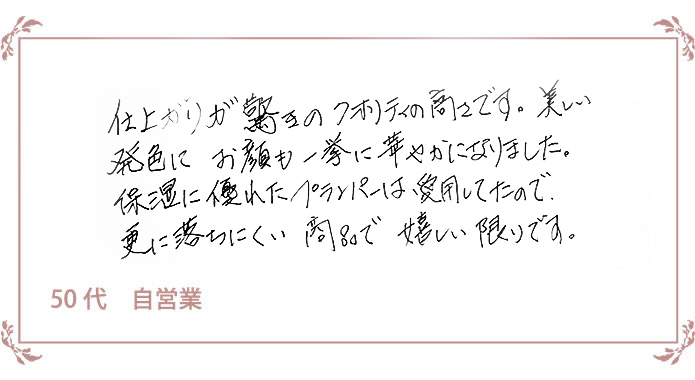 仕上がりが驚きのクオリティの高さです。美しい
発色に お顔も一挙に華やかになりました。
保湿に優れたプランパーは、愛用してたので、
更に落ちにくい 商品で 嬉しい限りです。
50代 自営業